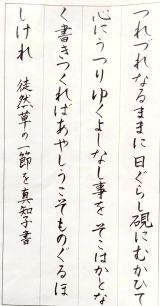 つれづれなるままに日ぐらし硯にむかひて
心にうつりゆくよしなし事をそこはかとな
く書きつくればあやしうこそものぐるほ
しけれ 徒然草の一節を 真知子書